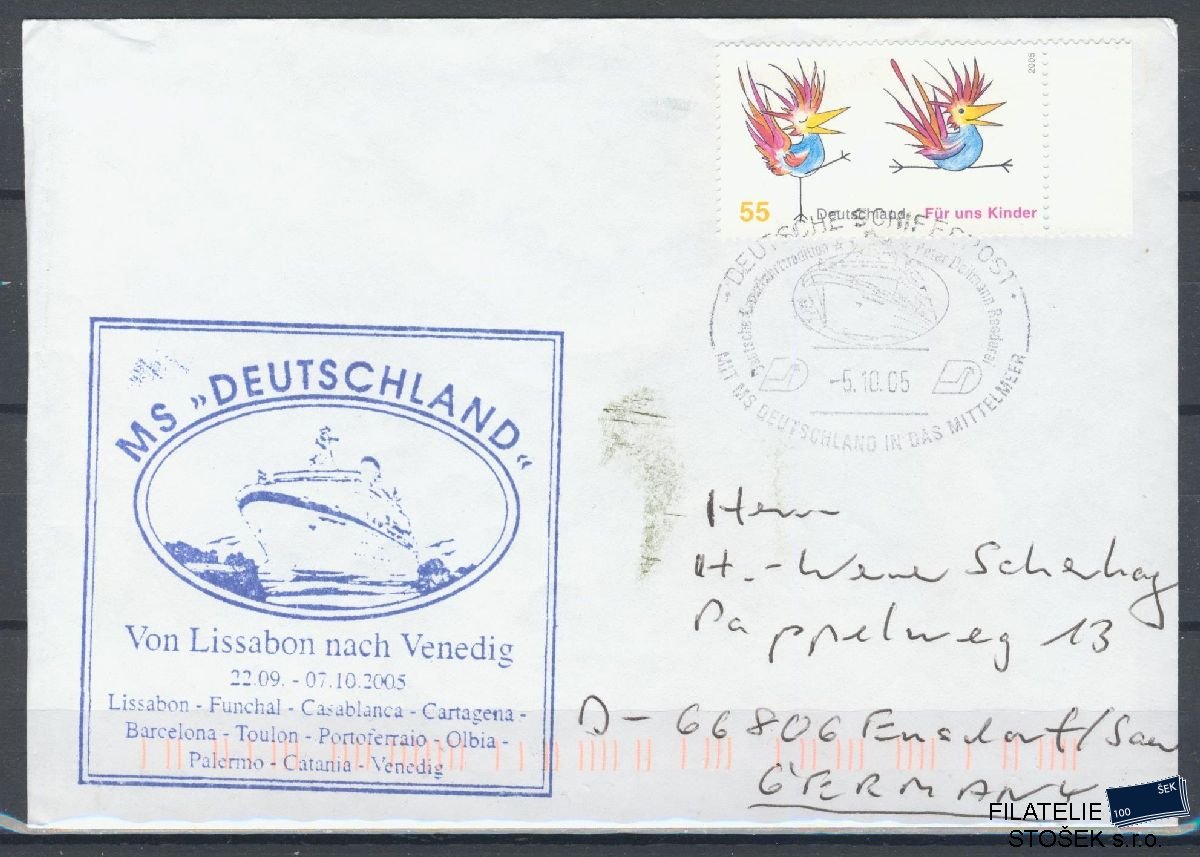 2005
55 Deutschland Für uns Kinder
DEUTSCHE SCHIFFSPOST
Peter Deilmann Reederei
-5.10.05
MIT MS DEUTSCHLAND IN DAS MITTELMEER
MS »DEUTSCHLAND«
Von Lissabon nach Venedig
22.09. - 07.10.2005
Lissabon - Funchal - Casablanca - Cartagena -
Barcelona - Toulon - Portoferraio - Olbia -
Palermo - Catania - Venedig
Herrn
H.-Werner Scherhag
Pappelweg 13
D-66806 Ensdorf/Saar
GERMANY
FILATELIE
STOŠEK s.r.o.
100 ŠEK